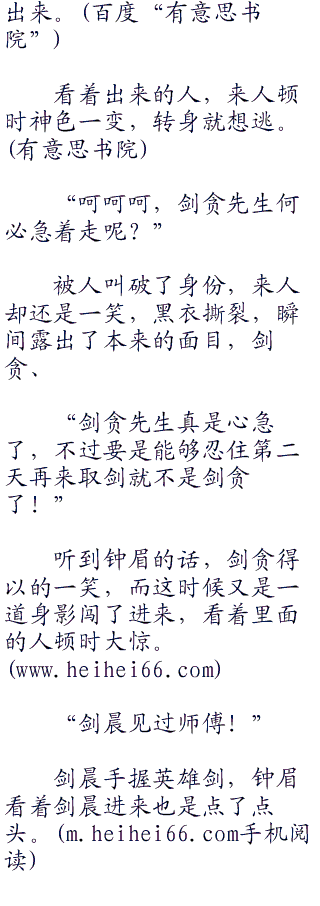 出来。(百度“有意思书
院”)
看着出来的人，来人顿
时神色一变，转身就想逃。
(有意思书院)
“呵呵呵，剑贪先生何
必急着走呢？”
被人叫破了身份，来人
却还是一笑，黑衣撕裂，瞬
间露出了本来的面目，剑
贪、
“剑贪先生真是心急
了，不过要是能够忍住第二
天再来取剑就不是剑贪
了！”
听到钟眉的话，剑贪得
以的一笑，而这时候又是一
道身影闯了进来，看着里面
的人顿时大惊。
(www.heihei66.com)
“剑晨见过师傅！”
剑晨手握英雄剑，钟眉
看着剑晨进来也是点了点
头。(m.heihei66.com手机阅
读)